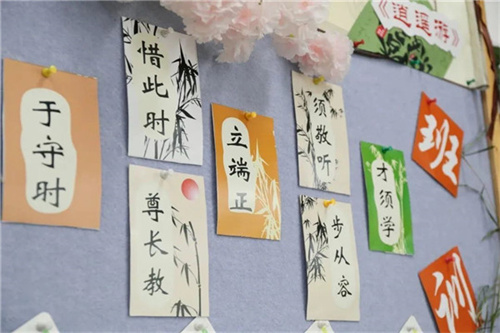 《逍遥游》
于守时
惜此时
立端正
须敬听
才须学
班
尊长教
步从容
训